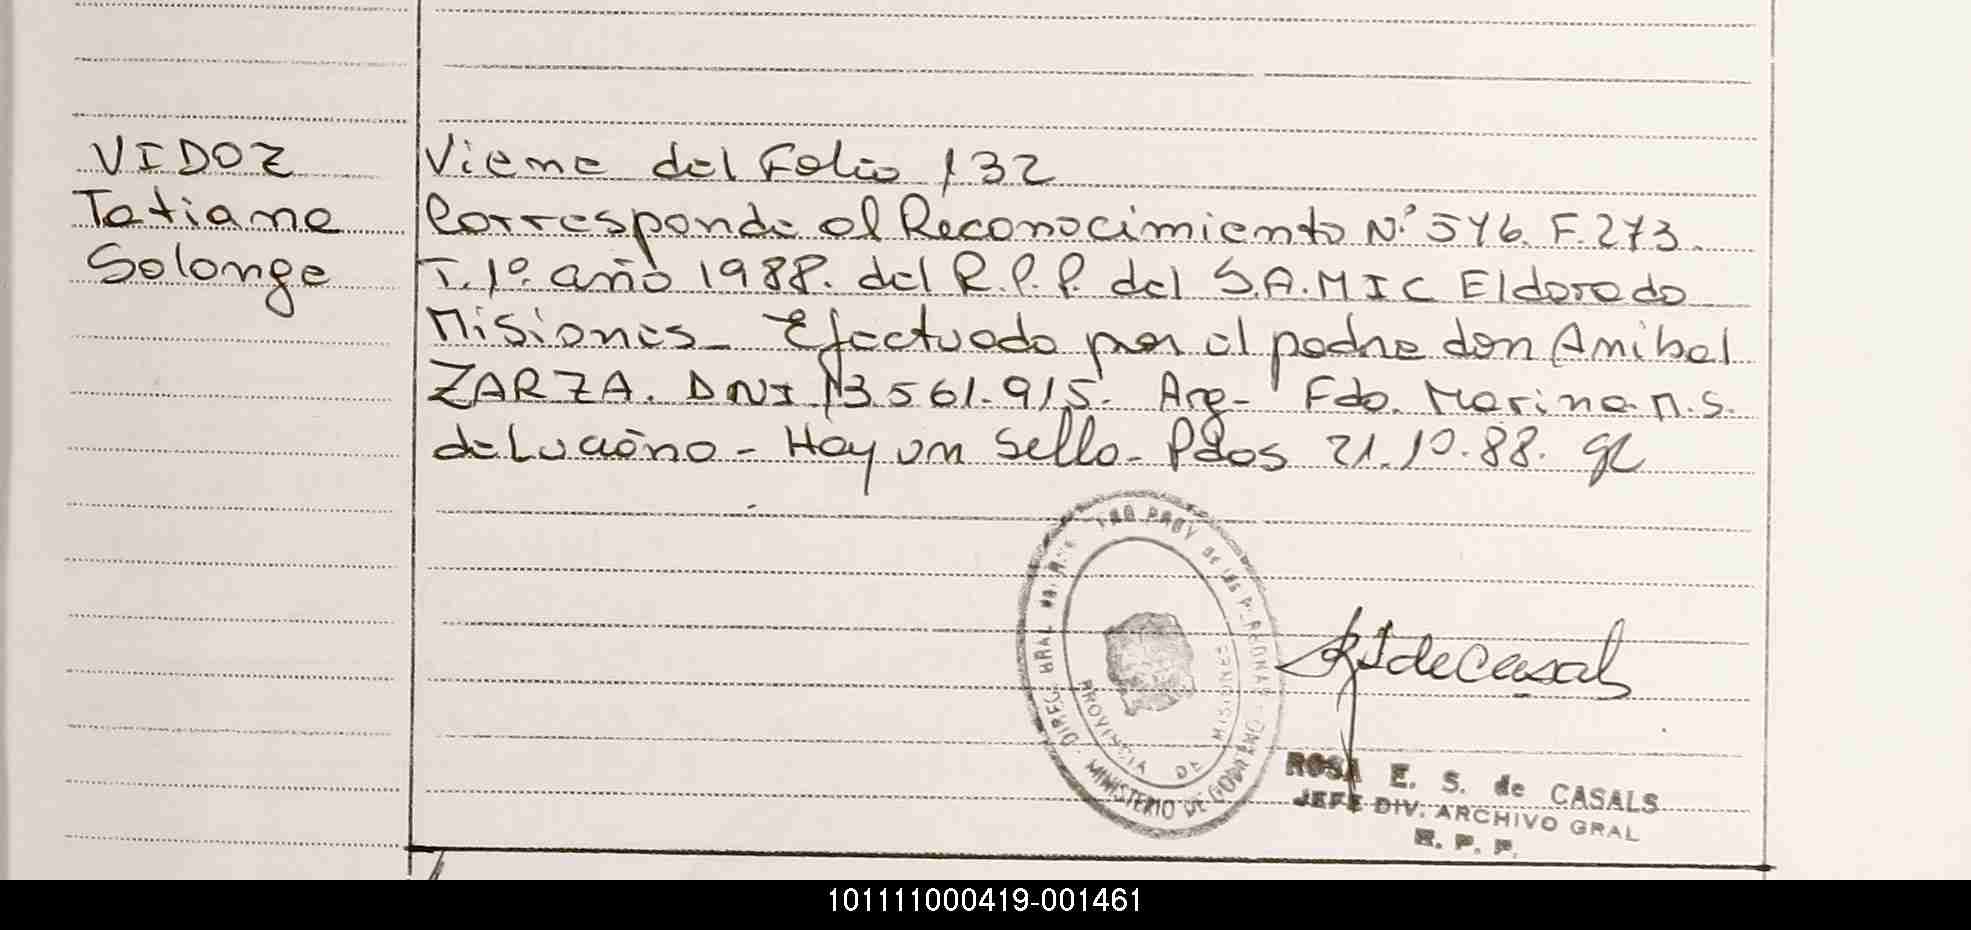 VIDOZ
Tatiana
Solange
Viene del Folio 132
Corresponde al Reconocimiento Nº 546. F. 273.
T. 1º. año 1988. del R.P.P. del S.A.M I C Eldorado
Misiones_ Efectuado por el padre don Anibal
ZARZA. DNI 13.561.915. Arg_ Fdo. Marina M.S.
de Luciano_ Hay un sello_ Pdos 21.10.88.
PROVINCIA DE MISIONES
MINISTERIO DE GOBIERNO
R S de Casals
ROSA E. S. de CASALS
JEFE DIV. ARCHIVO GRAL
R. P. P.
101111000419-001461